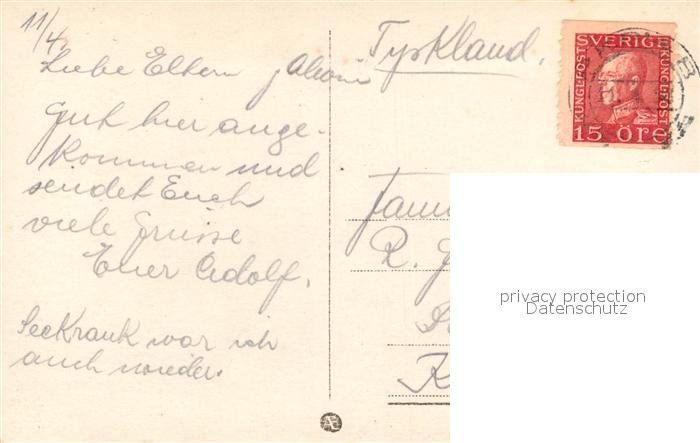 11/4.
Liebe Eltern
Gut hier ange-
kommen und
sendet Euch
viele Grüsse
Euer Adolf.
Seekrank war ich
auch wieder.
Tyskland.
SVERIGE
KUNGL·POST
KUNGL·POST
15 ÖRE
R.
privacy protection
Datenschutz